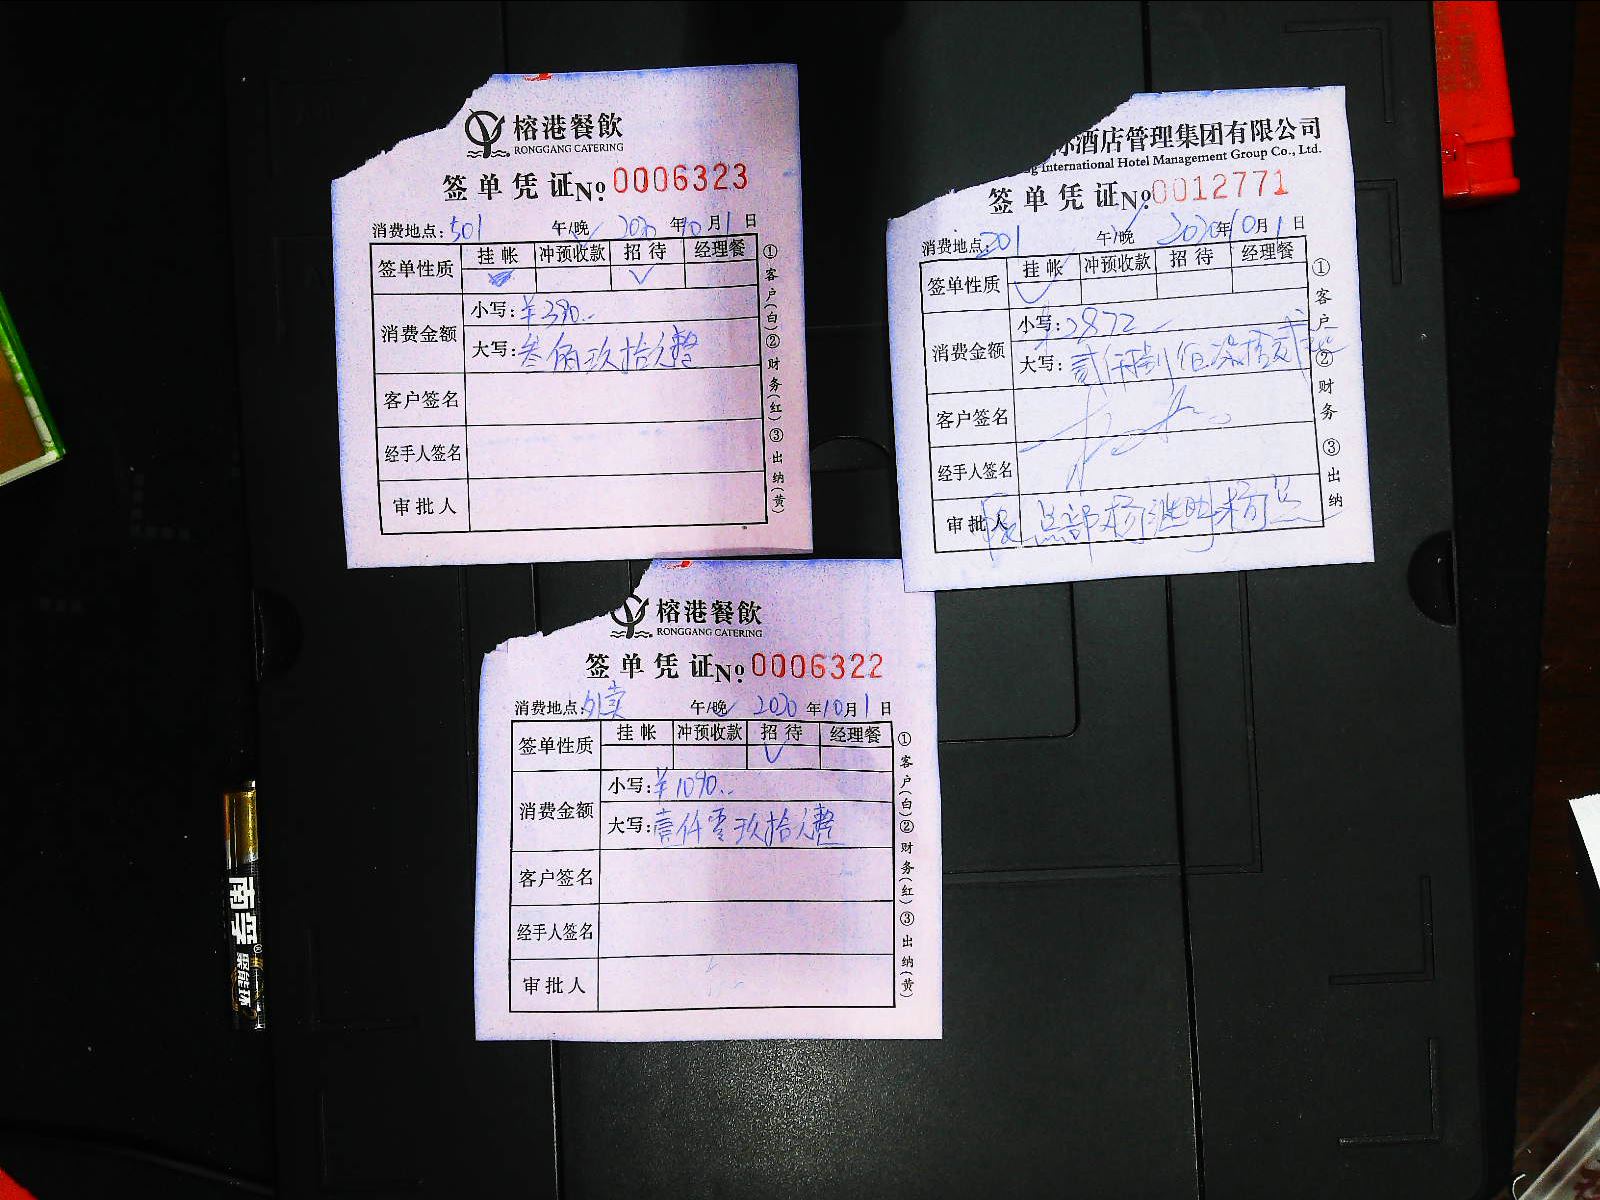 榕港餐飲
RONGGANG CATERING
签单凭证No.0006323
消费地点:501 午/晚 2020年10月1日
签单性质 挂帐 冲预收款 招待 经理餐
消费金额
小写:¥390..
大写:叁佰玖拾元整
客户签名
经手人签名
审批人
①客户(白)②财务(红)③出纳(黄)
酒店管理集团有限公司
International Hotel Management Group Co., Ltd.
签单凭证No.0012771
消费地点:201 午/晚 2020年10月1日
签单性质 挂帐 冲预收款 招待 经理餐
消费金额
小写:2872
大写:贰仟捌佰柒拾贰
客户签名
经手人签名
审批人
①客户②财务③出纳
榕港餐飲
RONGGANG CATERING
签单凭证No.0006322
消费地点:外卖 午/晚 2020年10月1日
签单性质 挂帐 冲预收款 招待 经理餐
消费金额
小写:¥1090..
大写:壹仟零玖拾元整
客户签名
经手人签名
审批人
①客户(白)②财务(红)③出纳(黄)
南孚®
聚能环